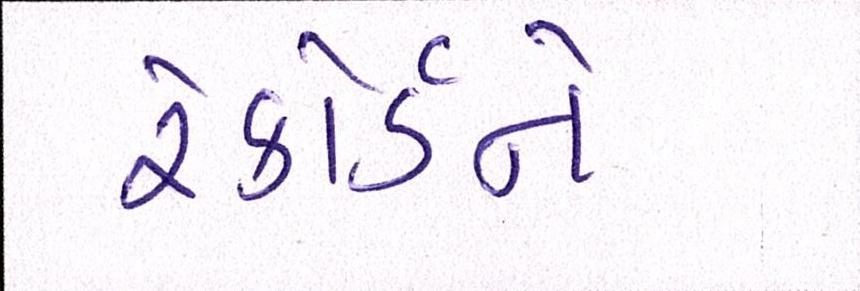 રેકોર્ડને